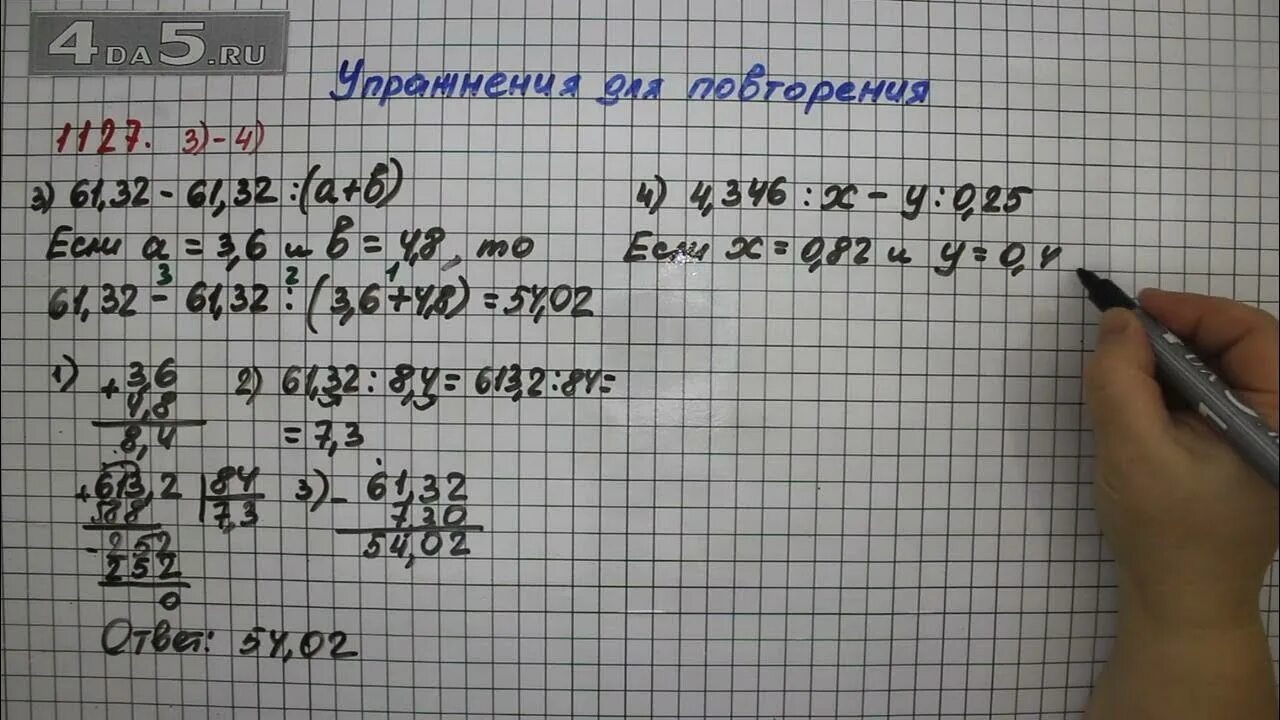 4DA5.RU
Упражнения для повторения
1127. 3)-4)
3) 61,32 - 61,32 : (a+b)
Если a = 3,6 и b = 4,8, то
3 2 1
61,32 - 61,32 : (3,6+4,8) = 54,02
1) +3,6
4,8
8,4
2) 61,32 : 8,4 = 613,2 : 84 =
= 7,3
613,2 84
588 7,3
- 252
252
0
3) - 61,32
7,30
54,02
Ответ: 54,02
4) 4,346 : x - y : 0,25
Если x = 0,82 и y = 0,4